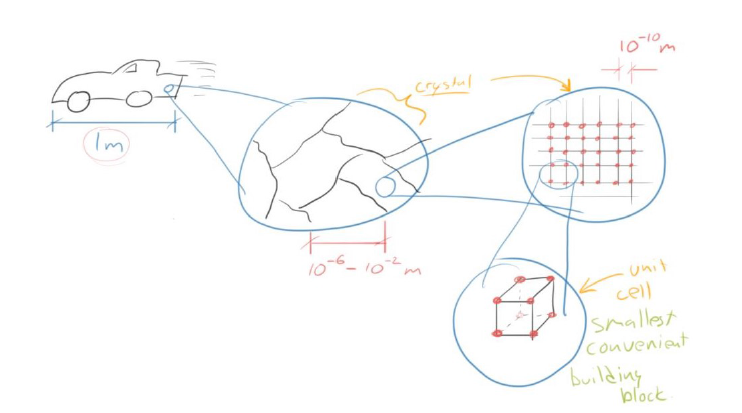 10⁻¹⁰ m
crystal
1m
10⁻⁶ - 10⁻² m
unit
cell
smallest
convenient
building
block